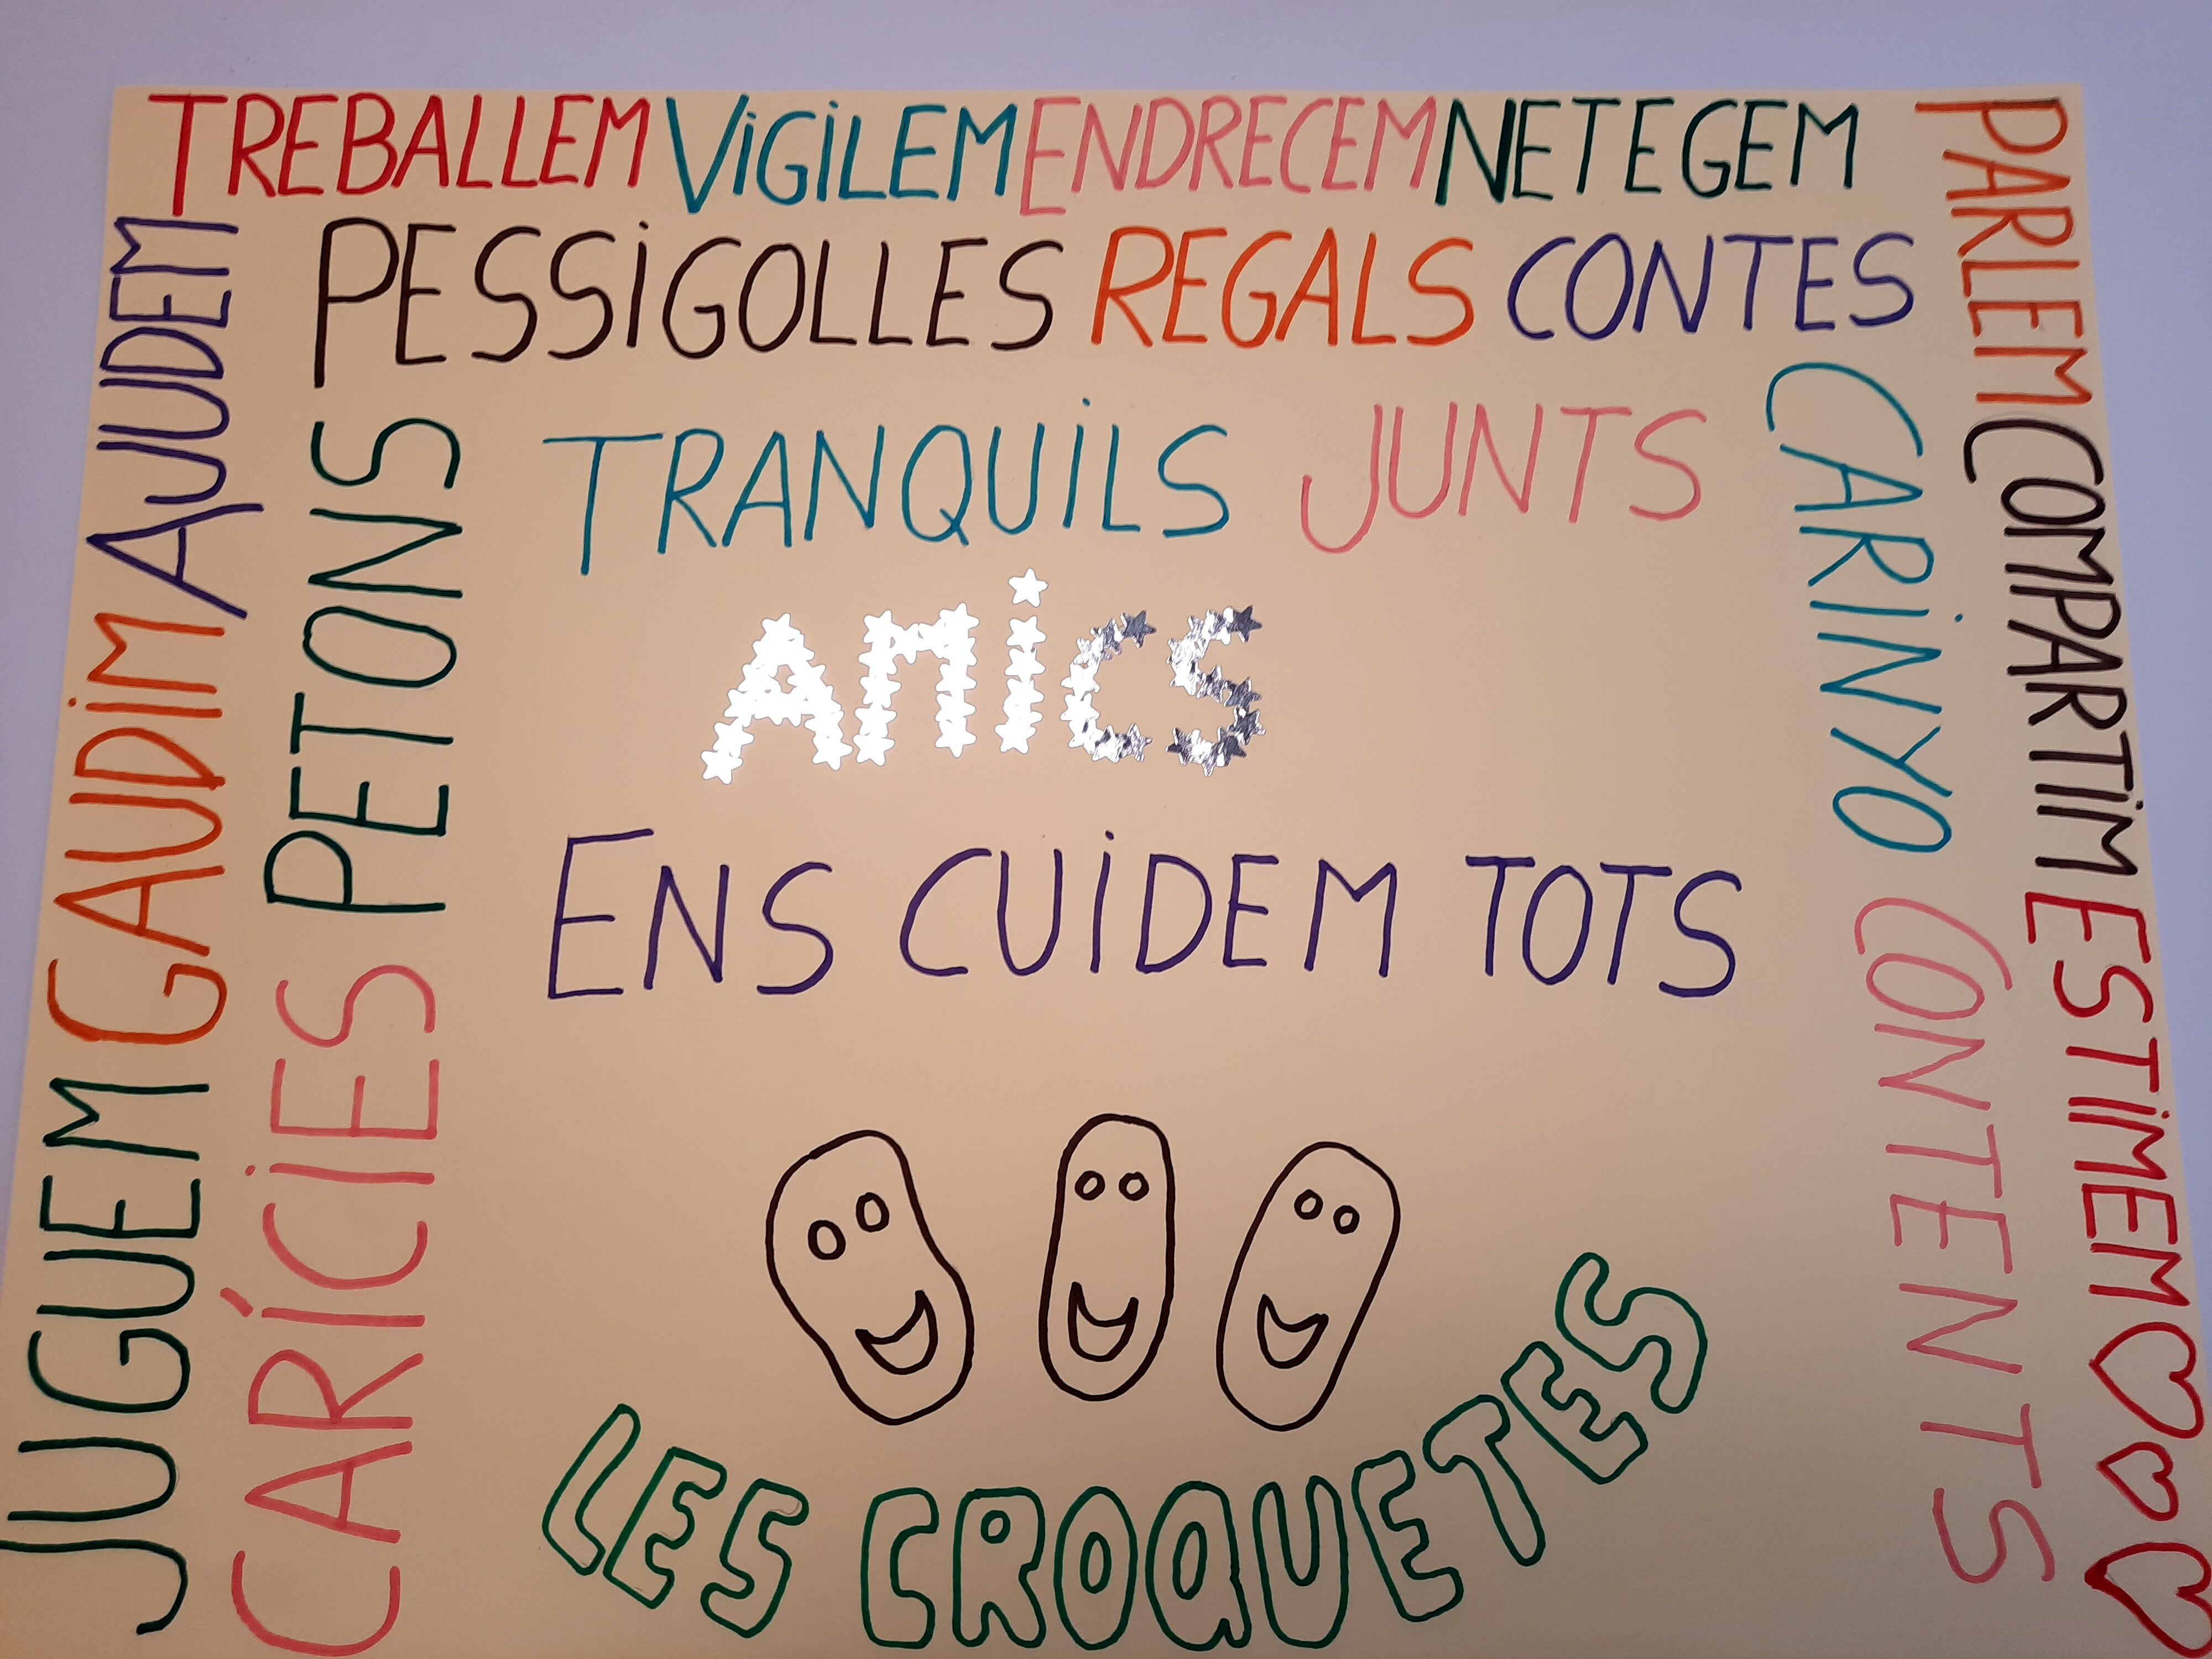 TREBALLEM VIGILEM ENDRECEM NETEGEM
PARLEM COMPARTIM ESTIMEM
JUGUEM GAUDIM AJUDEM
PESSIGOLLES REGALS CONTES
CARÍCIES PETONS
CARINYO CONTENTS
TRANQUILS JUNTS
AMICS
ENS CUIDEM TOTS
LES CROQUETES